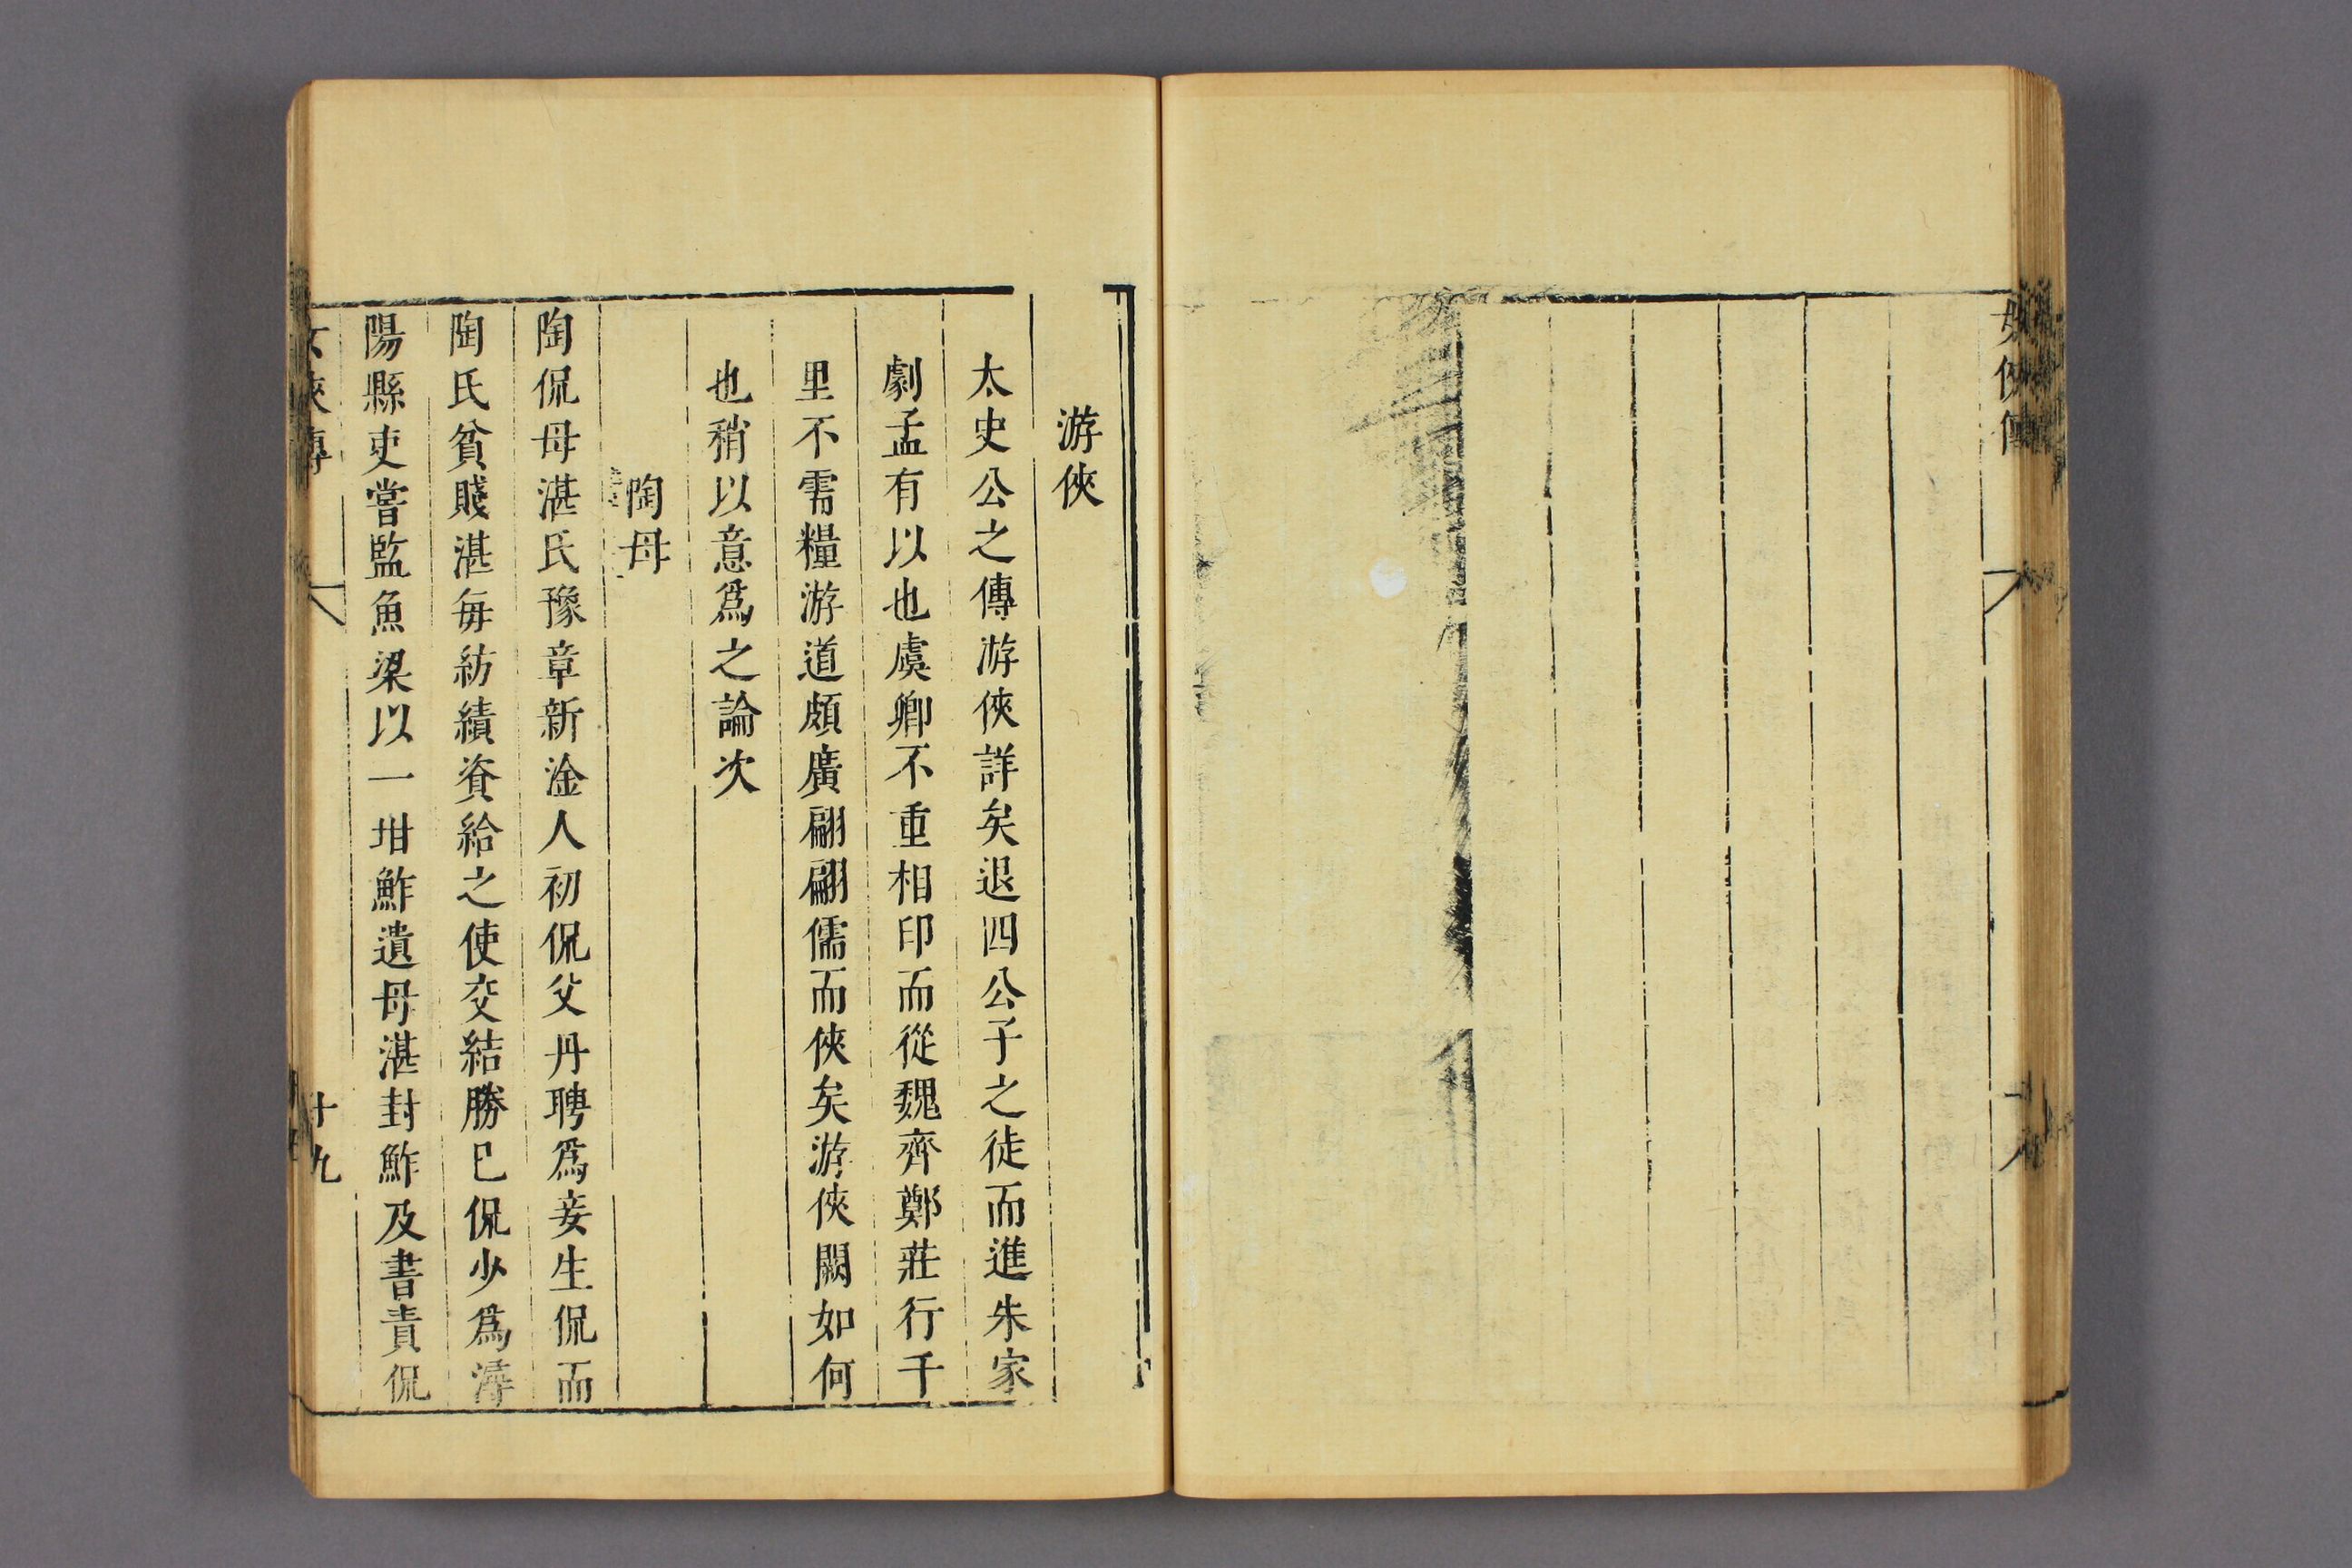 女俠傳
游俠
太史公之傳游俠詳矣退四公子之徒而進朱家
劇孟有以也虞卿不重相印而從魏齊鄭莊行千
里不需糧游道頗廣翩翩儒而俠矣游俠闕如何
也稍以意爲之論次
陶母
陶侃母湛氏豫章新淦人初侃父丹聘爲妾生侃而
陶氏貧賤湛每紡績資給之使交結勝已侃少爲潯
陽縣吏嘗監魚梁以一坩鮓遺母湛封鮓及書責侃
女俠傳
十九